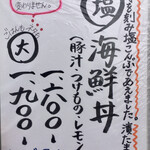 る刻み塩こんぶであえました 漬だ
塩 海鮮丼
(豚汁・つけもの・レモン
一、六〇〇ー
大
一、九〇〇ー
変わりません。